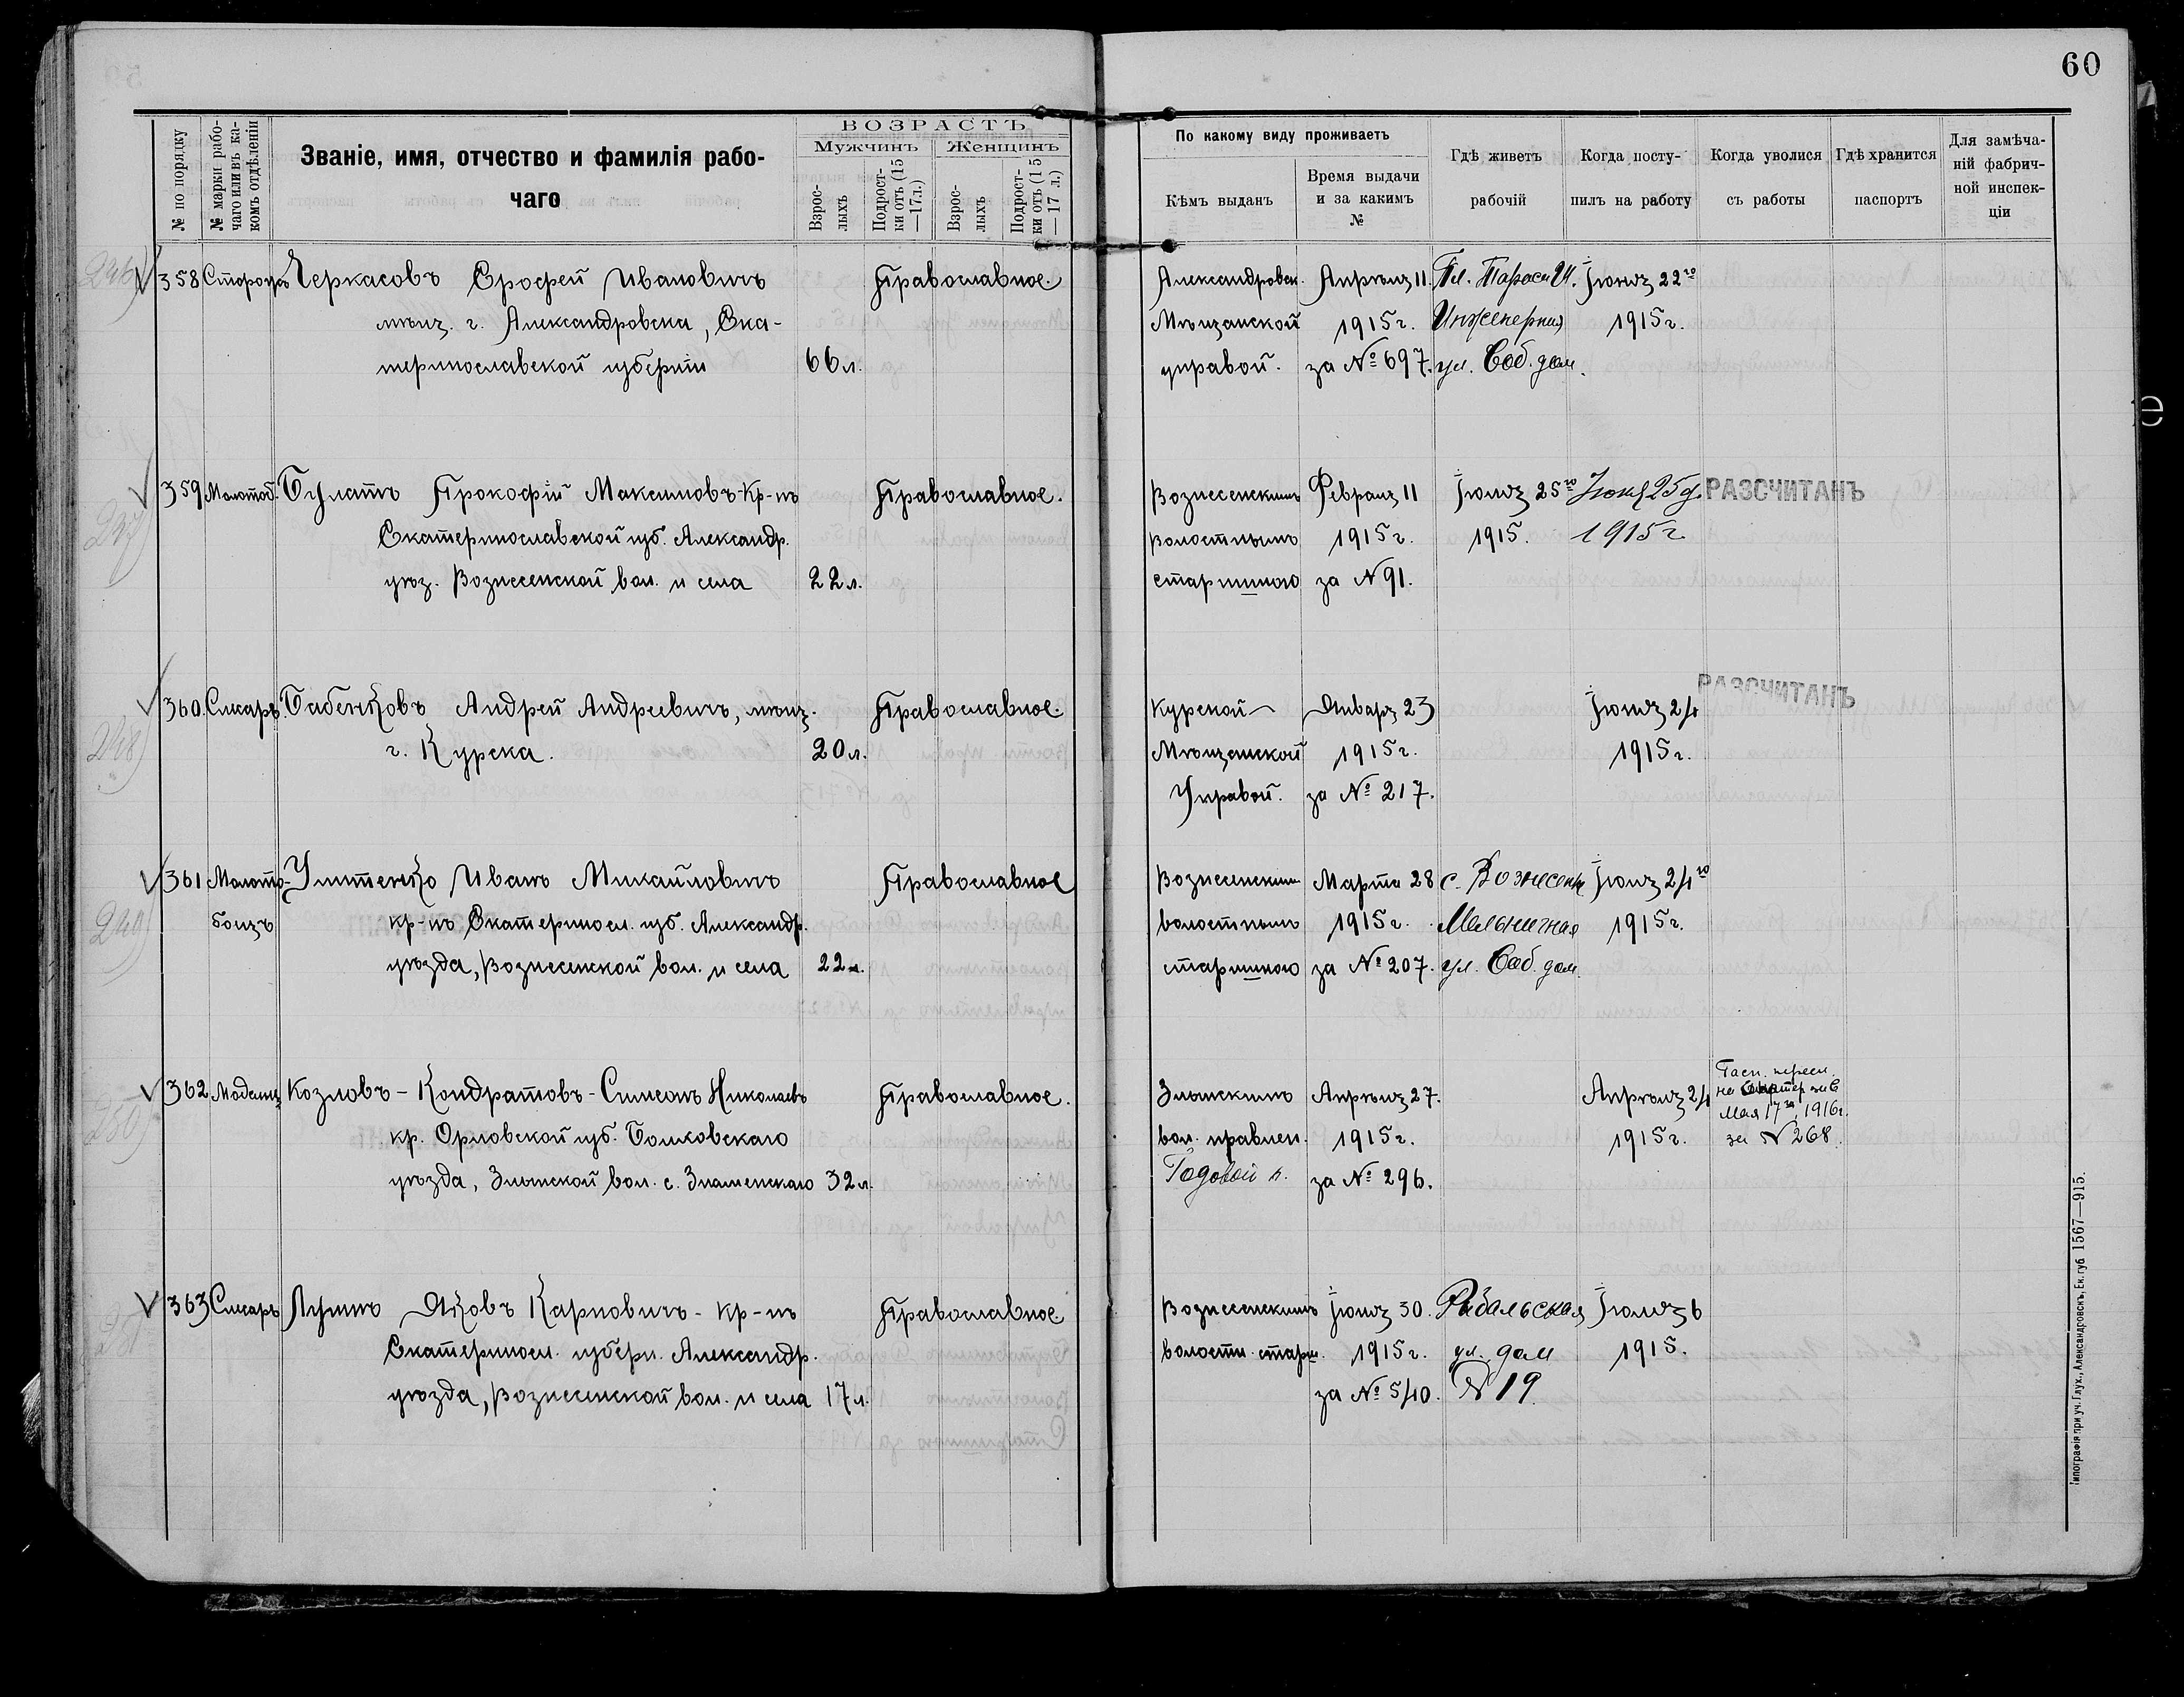 60
№ по порядку
№ марки рабо-
чаго или въ ка-
комъ отдѣленіи
Званіе, имя, отчество и фамилія рабо-
чаго
ВОЗРАСТЪ
Мужчинъ
Женщинъ
Взрос-
лыхъ
Подрост-
ки отъ (15
—17 л.)
Взрос-
лыхъ
Подрост-
ки отъ (15
—17 л.)
По какому виду проживаетъ
Кѣмъ выданъ
Время выдачи
и за какимъ
№
Гдѣ живетъ
рабочій
Когда посту-
пилъ на работу
Когда уволися
съ работы
Гдѣ хранится
паспортъ
Для замѣча-
ній фабрич-
ной инспек-
ціи
358 Сторожъ Черкасовъ Ерофей Ивановичъ Православное. Александровск. Апрѣля 11. Іюня 22го
мѣщ. г. Александровска, Ека- Мѣщанской 1915 г. Инженерная 1915 г.
теринославской губерніи 66 л. управой. за № 697. ул. Соб. дом.
359 Молотоб. Булатъ Прокофій Максимовъ-Кр-нъ Православное. Вознесенскимъ Февраля 11 Іюля 25го РАЗСЧИТАНЪ
Екатеринославской губ. Александр. волостнымъ 1915 г. 1915. 1915 г.
уѣз. Вознесенской вол. и села 22 л. старшиною за № 91.
360. Слесарь. Бабенковъ Андрей Андреевичъ, мѣщ. Православное. Курской Января 23 Іюня 24 РАЗСЧИТАНЪ
г. Курска. 20 л. Мѣщанской 1915 г. 1915 г.
Управой. за № 217.
361 Молото- Улитенко Иванъ Михайловичъ Православное Вознесенскимъ Марта 28 с. Вознесенк Іюля 24го
боецъ кр-нъ Екатеринosл. губ. Александр. волостнымъ 1915 г. Мельничная 1915 г.
уѣзда, Вознесенской вол. и села 22 л. старшиною за № 207. ул. Соб. дом.
362 Козловъ-Кондратовъ-Симеонъ Николаевъ Православное. Злынскимъ Апрѣля 27. Апрѣля 24
кр. Орловской губ. Болховскаго вол. правлен. 1915 г. 1915 г. Мая 17го, 1916 г.
уѣзда, Злынской вол. с. Знаменскаго 32 л. Годовой п. за № 296. за № 268.
363 Слесарь Лупинъ Яковъ Карповичъ - кр-нъ Православное Вознесенскимъ Іюня 30. Рыбальская Іюля 6
Екатериносл. губерн. Александр. волостн. старш. 1915 г. ул. дом 1915.
уѣзда, Вознесенской вол. и села 17 л. за № 540. № 19
Типографія при уч. Глух., Александровскъ, Ек. губ. 1567—915.